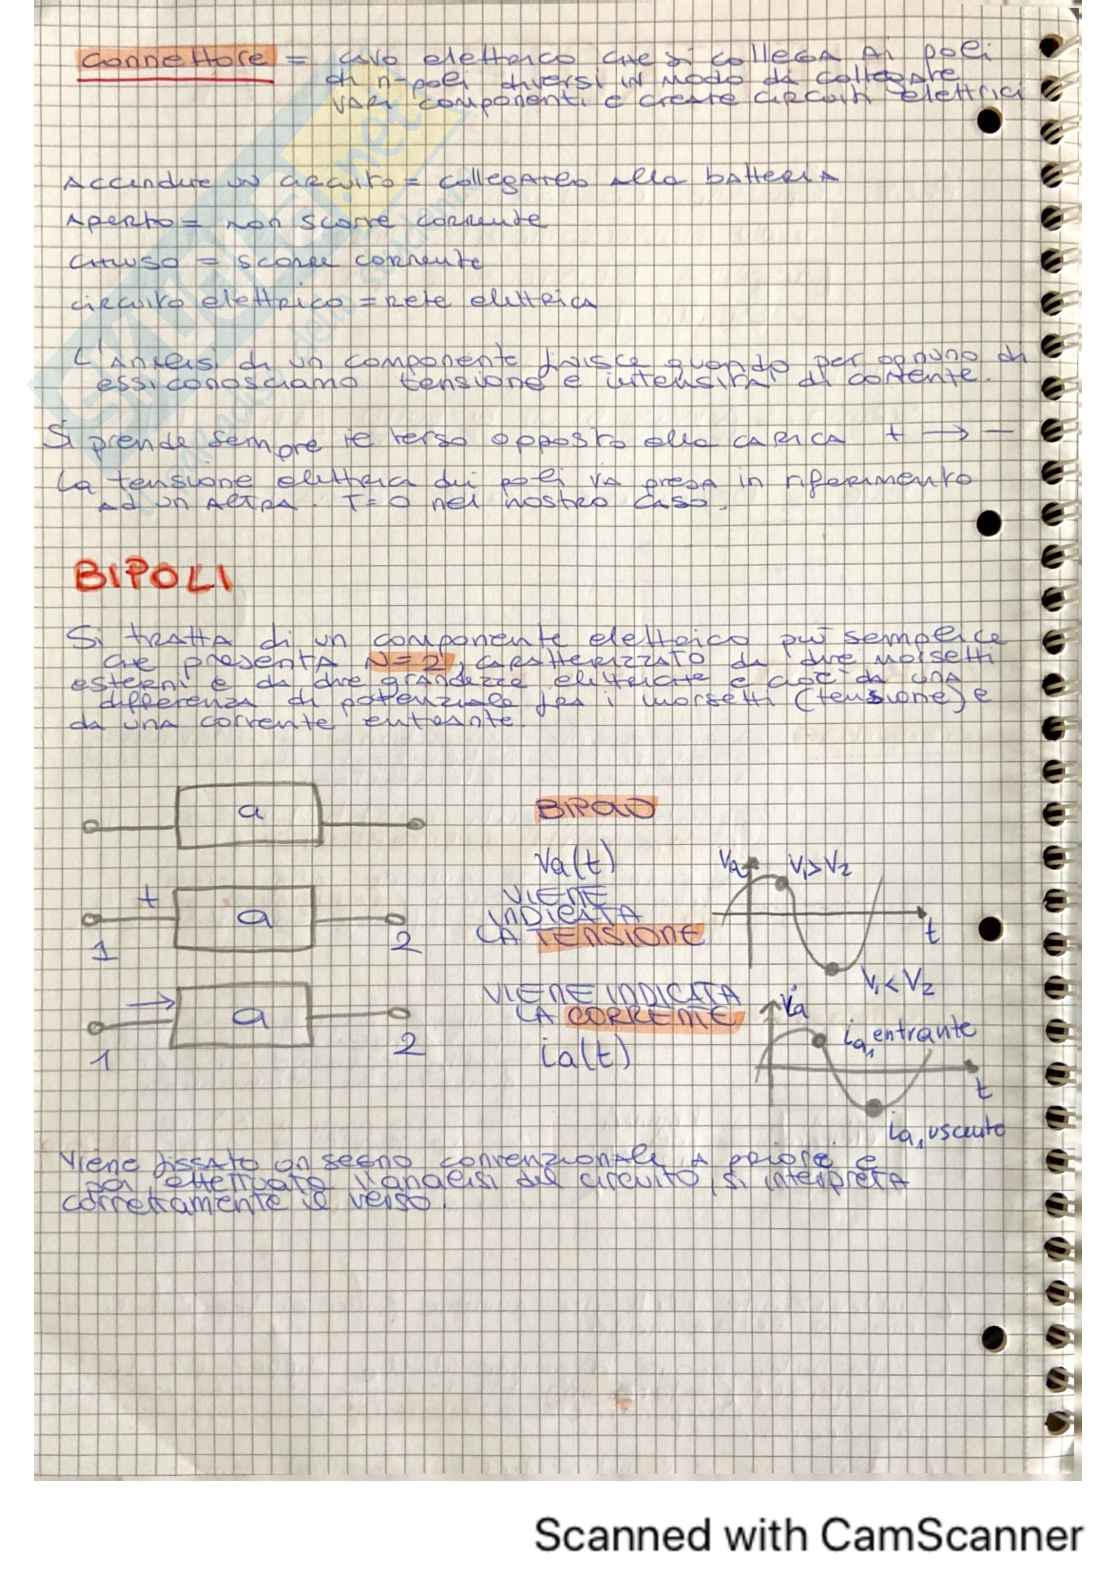 Connettore = cavo elettrico che si collega ai poli
di n-poli diversi in modo da collegare
vari componenti e creare circuiti elettrici
Accendere un circuito = collegarlo alla batteria
Aperto = non scorre corrente
Chiuso = scorre corrente
circuito elettrico = rete elettrica
L'analisi di un componente finisce quando per ognuno di
essi conosciamo tensione e intensità di corrente.
Si prende sempre il verso opposto alla carica + → −
La tensione elettrica dei poli va presa in riferimento
ad un altra T=0 nel nostro caso.
BIPOLI
Si tratta di un componente elettrico più semplice
che presenta N=2, caratterizzato da due morsetti
esterni e da due grandezze elettriche e cioè da una
differenza di potenziale fra i morsetti (tensione) e
da una corrente entrante.
a
BIPOLO
+ a
1 2
Va(t)
VIENE
INDICATA
LA TENSIONE
VA V1>V2
t
V1<V2
a
1 2
VIENE INDICATA
LA CORRENTE
ia(t)
ia, entrante
t
ia, uscente
Viene fissato un segno convenzionale a priori e
poi, effettuata l'analisi del circuito, si interpreta
correttamente il verso.
Scanned with CamScanner